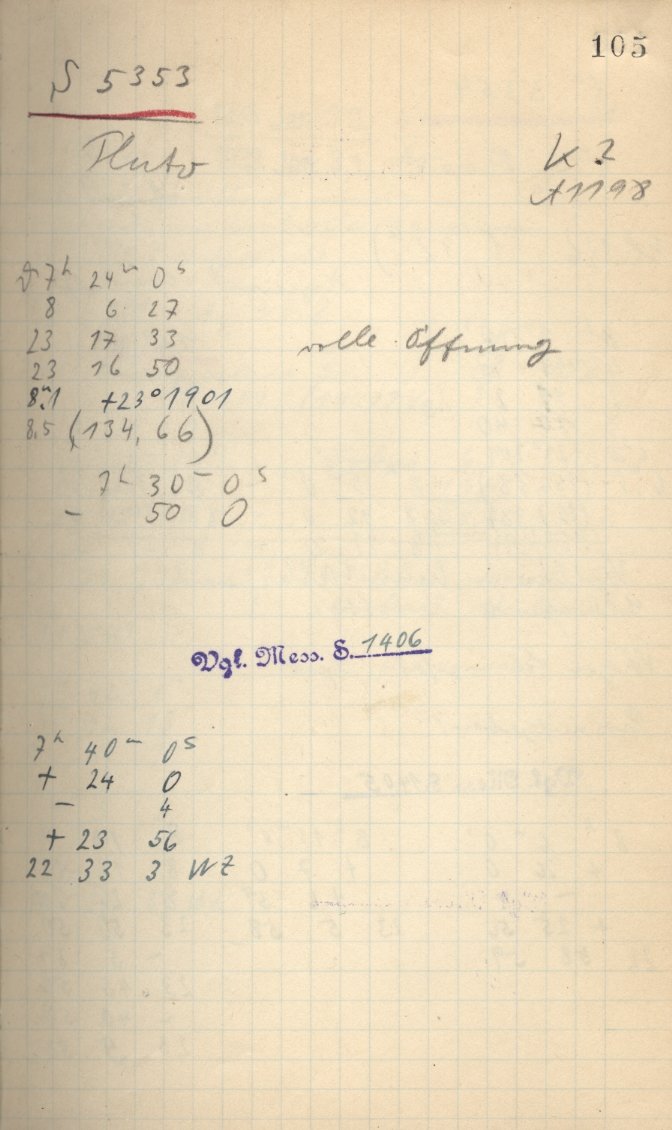 105
S 5353
Pluto
K 2
A 1198
7ʰ 24ᵐ 0ˢ
8 6 27
23 17 33
23 16 50
volle Öffnung
8ᵐ.1 +23° 1901
8.5 (134, 66)
7ʰ 30ᵐ 0ˢ
- 50 0
Vgl. Mess. S. 1406
7ʰ 40ᵐ 0ˢ
+ 24 0
- 4
+ 23 56
22 33 3 WZ